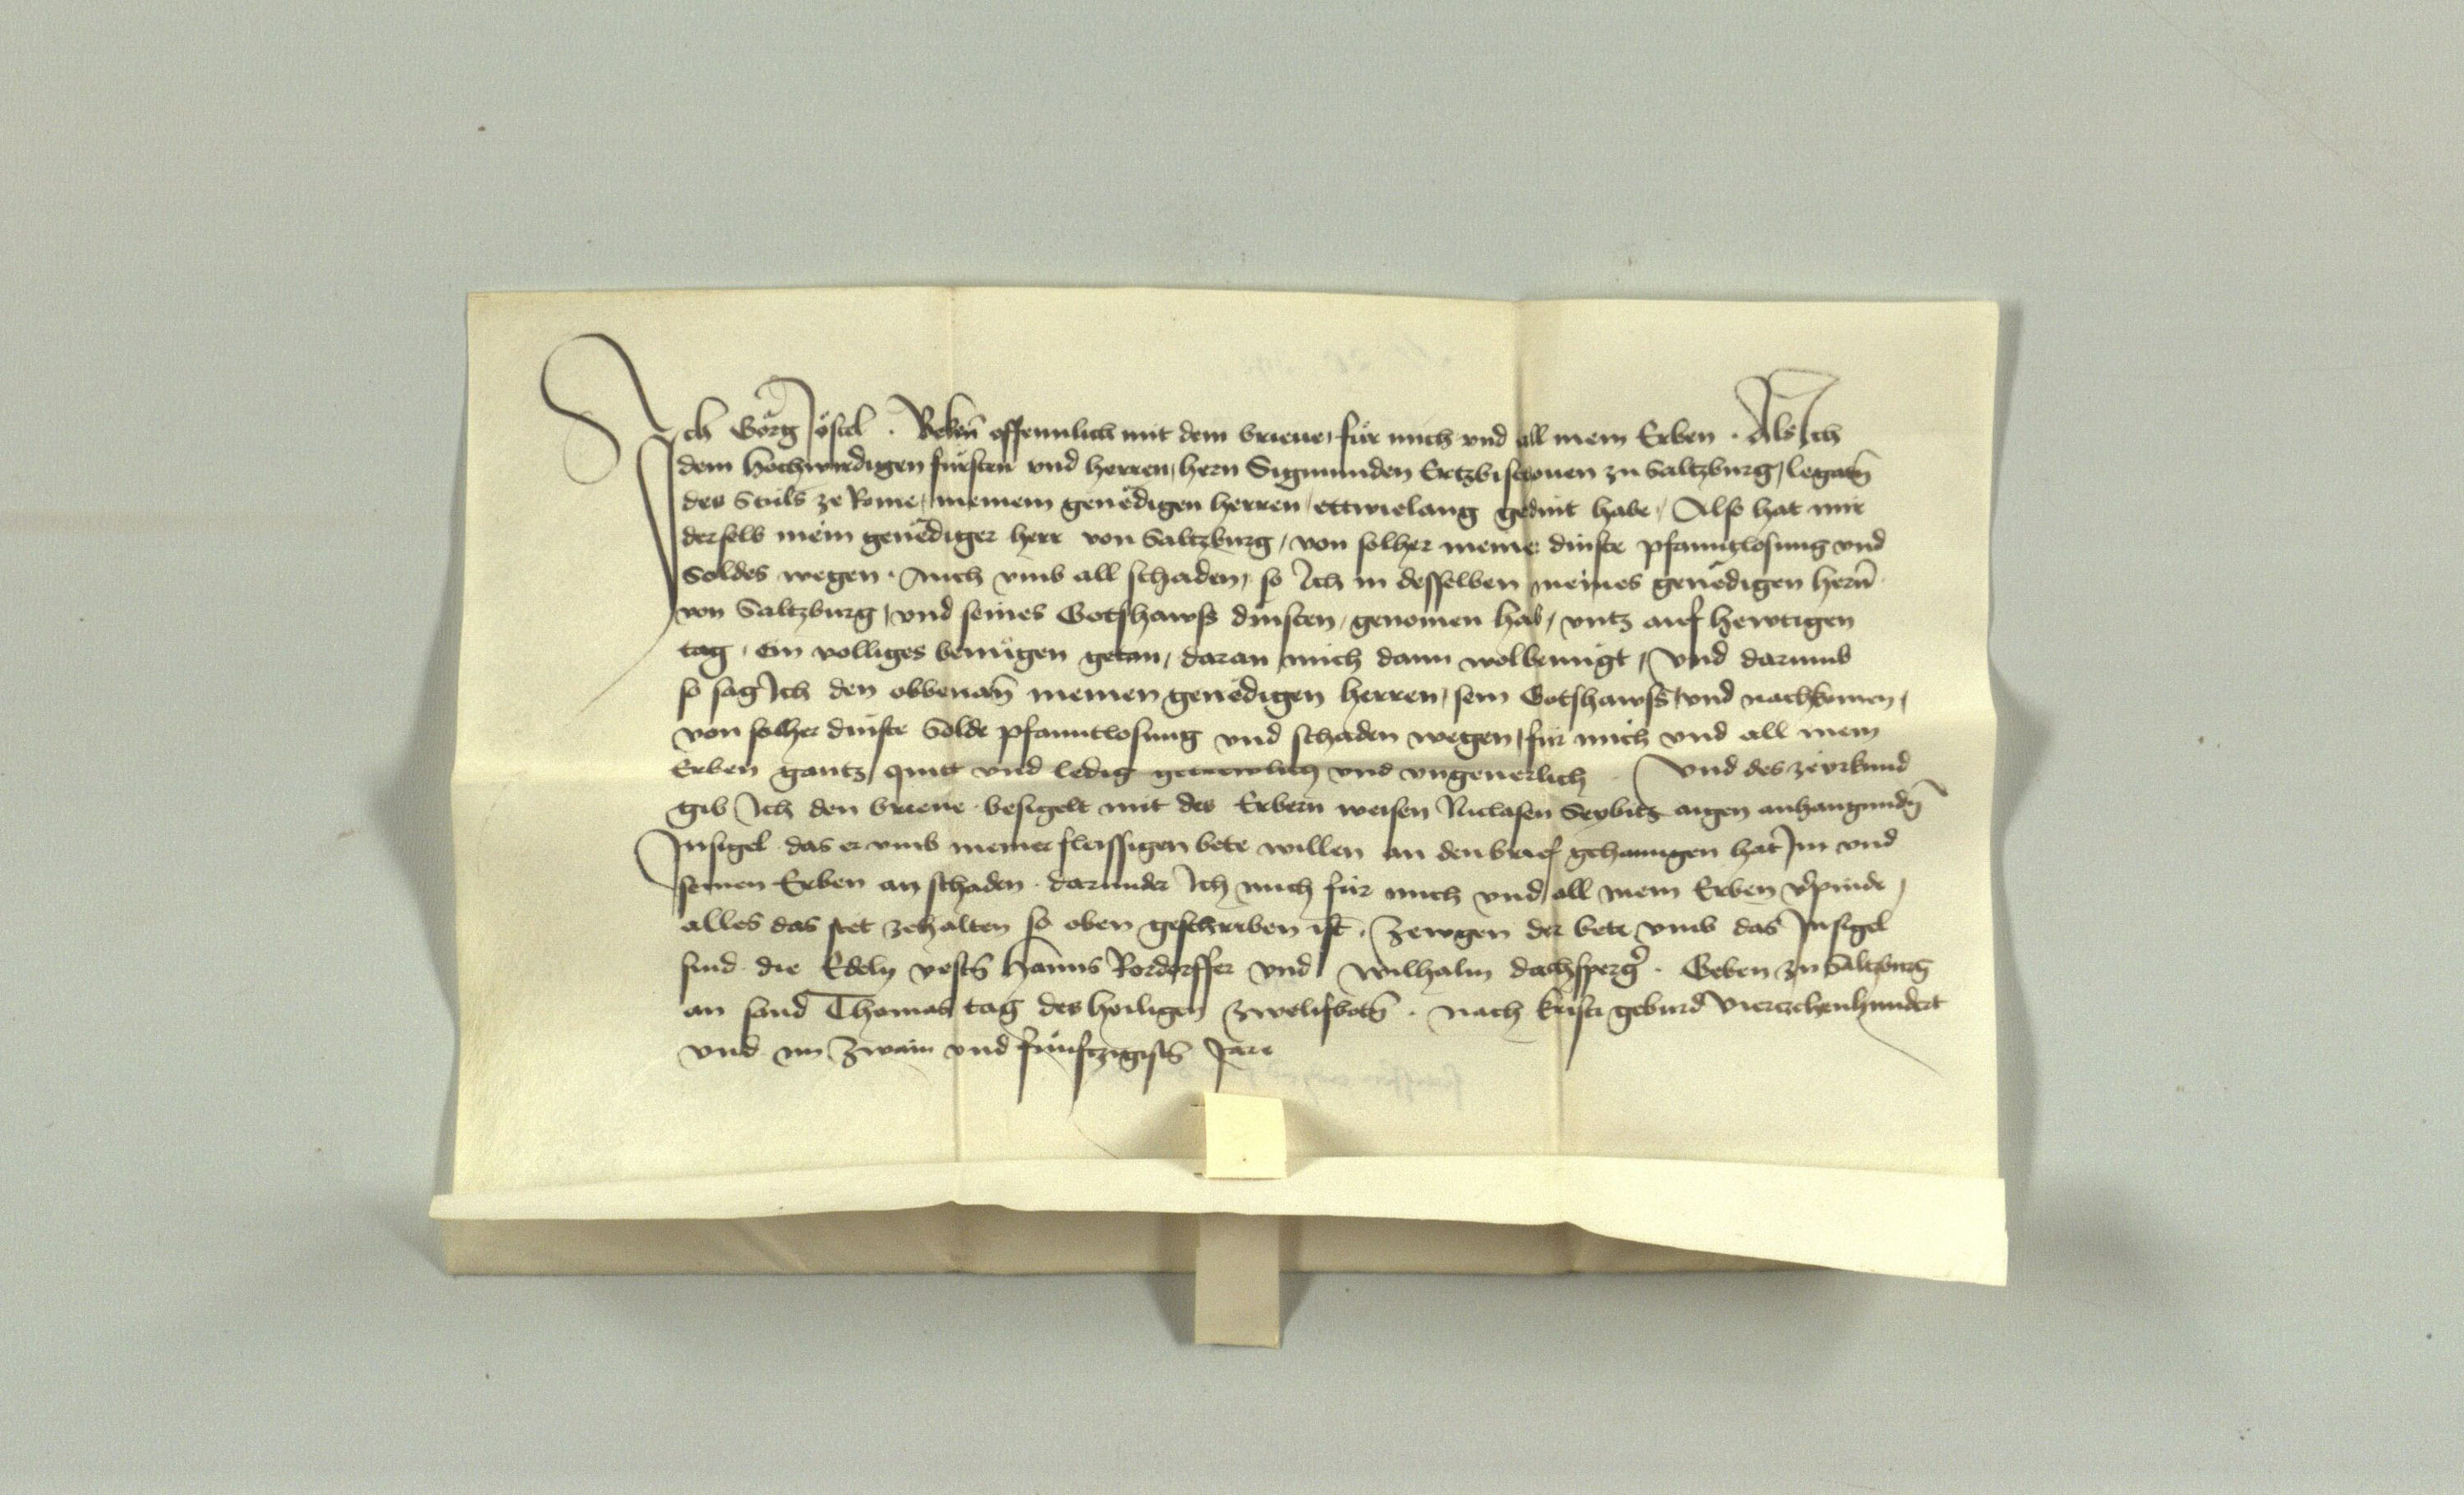 Ich Görg Jöstel . Beken̄ offennlich mit dem brieue, für mich vnd all mein Erben . Als Ich
dem hochwirdigen fürsten vnd herren, hern Sigmunden Ertzbischouen zu Saltzburg, legatn̄
des Stuls ze Rome, meinem genedigen herren, ettwielang gedint habe, Also hat mir
derselb mein genediger herr von Saltzburg, von solher meiner dinste pfanntlosung vnd
Soldes wegen . Auch vmb all scheden, so Ich in desselben meines genedigen hern̄
von Saltzburg, vnd seines Gotshawss dinsten, genomen hab, vntz auf hewtigen
tag, ein volliges benügen getan, daran mich dann wolbenügt, Vnd darumb
so sag Ich den obbenan̄ meinen genedigen herren, sein Gotshawss, vnd nachkomen,
von solher dinste Solde pfanntlosung vnd scheden wegen, für mich vnd all mein
Erben gantz, quitt vnd ledig getrewlich vnd vngeuerlich . Vnd des ze vrkund
gib Ich den brieue besigelt mit des Erbern weisen Niclasen Seybitz aigen anhangundn̄
Insigel das er vmb meiner fleissigen bete willen an den brief gehanngen hat Im vnd
seinen Erben an schaden . darunder Ich mich für mich vnd all mein Erben v̄pinde,
alles das stet zehalten so oben geschriben ist . Zewgen der bete vmb das Insigel
sind die Edeln vestn̄ Hanns Rordorffer vnd Wilhalm dachsperḡ . Geben zu Saltzburg
an sand Thomas tag des heiligen zwelifbotn̄ . nach kristi geburd Vierzehenhundert
vnd im zwain vnd fünftzigistn̄ Jare